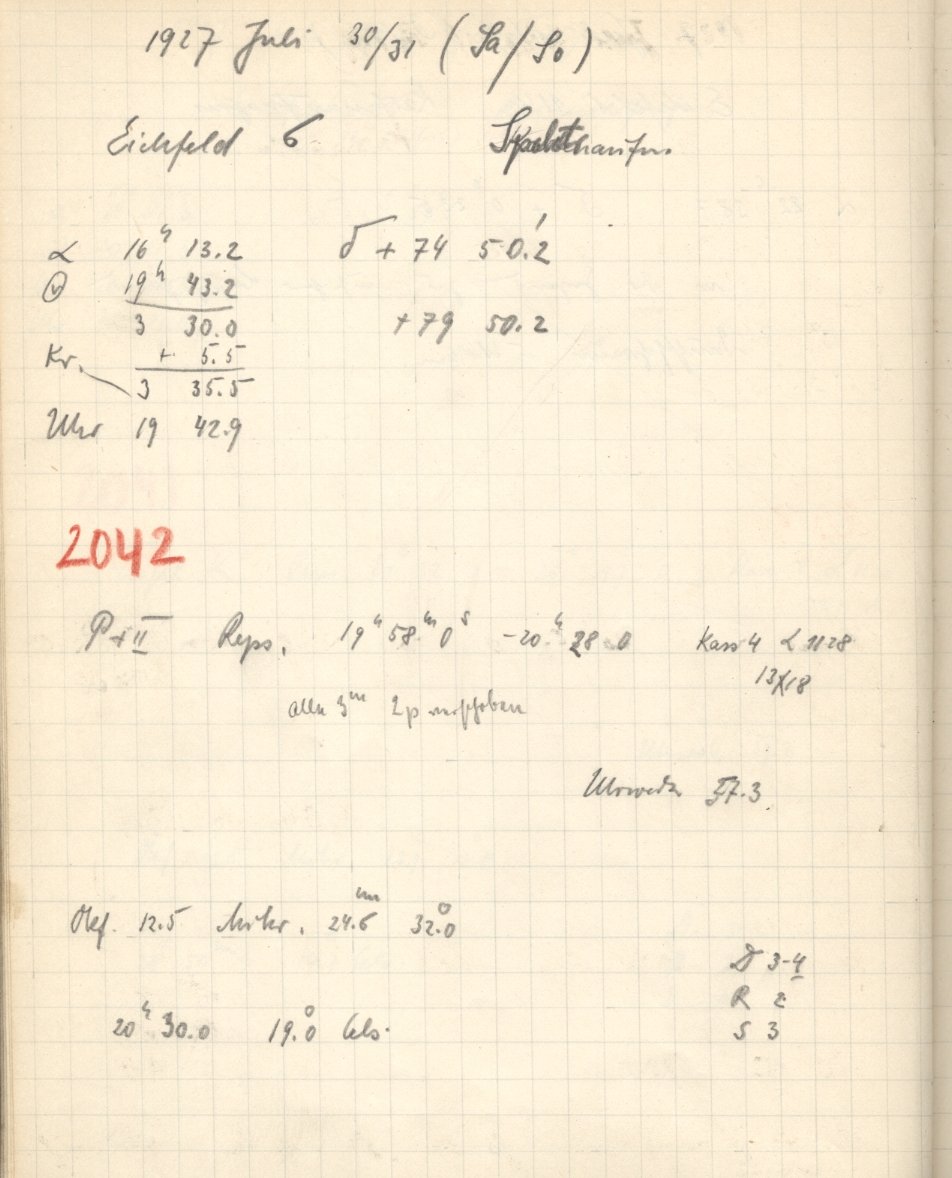 1927 Juli 30/31 (Sa/So)
Eichfeld 6
α 16ʰ 13.2 δ + 74 50.2'
19ʰ 43.2
3 30.0 +79 50.2
Kr. + 5.5
3 35.5
Uhr 19 42.9
2042
P+II Reps. 19ʰ58ᵐ0ˢ -20ʰ 28 0 Kass 4 L 1128
13X18
alle 3ᵐ 2p verschoben
57.3
Okf. 12.5 Mikr. 24.6ᵐᵐ 32.0°
D 3-4
R 2
20ʰ 30.0 19.0° Cels.
S 3